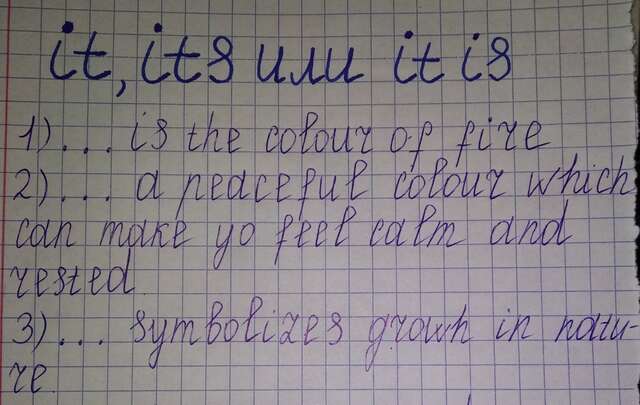 it, its или it is
1)... is the colour of fire
2)... a peaceful colour which
can make yo feel calm and
rested.
3)... symbolizes growh in natu-
re.